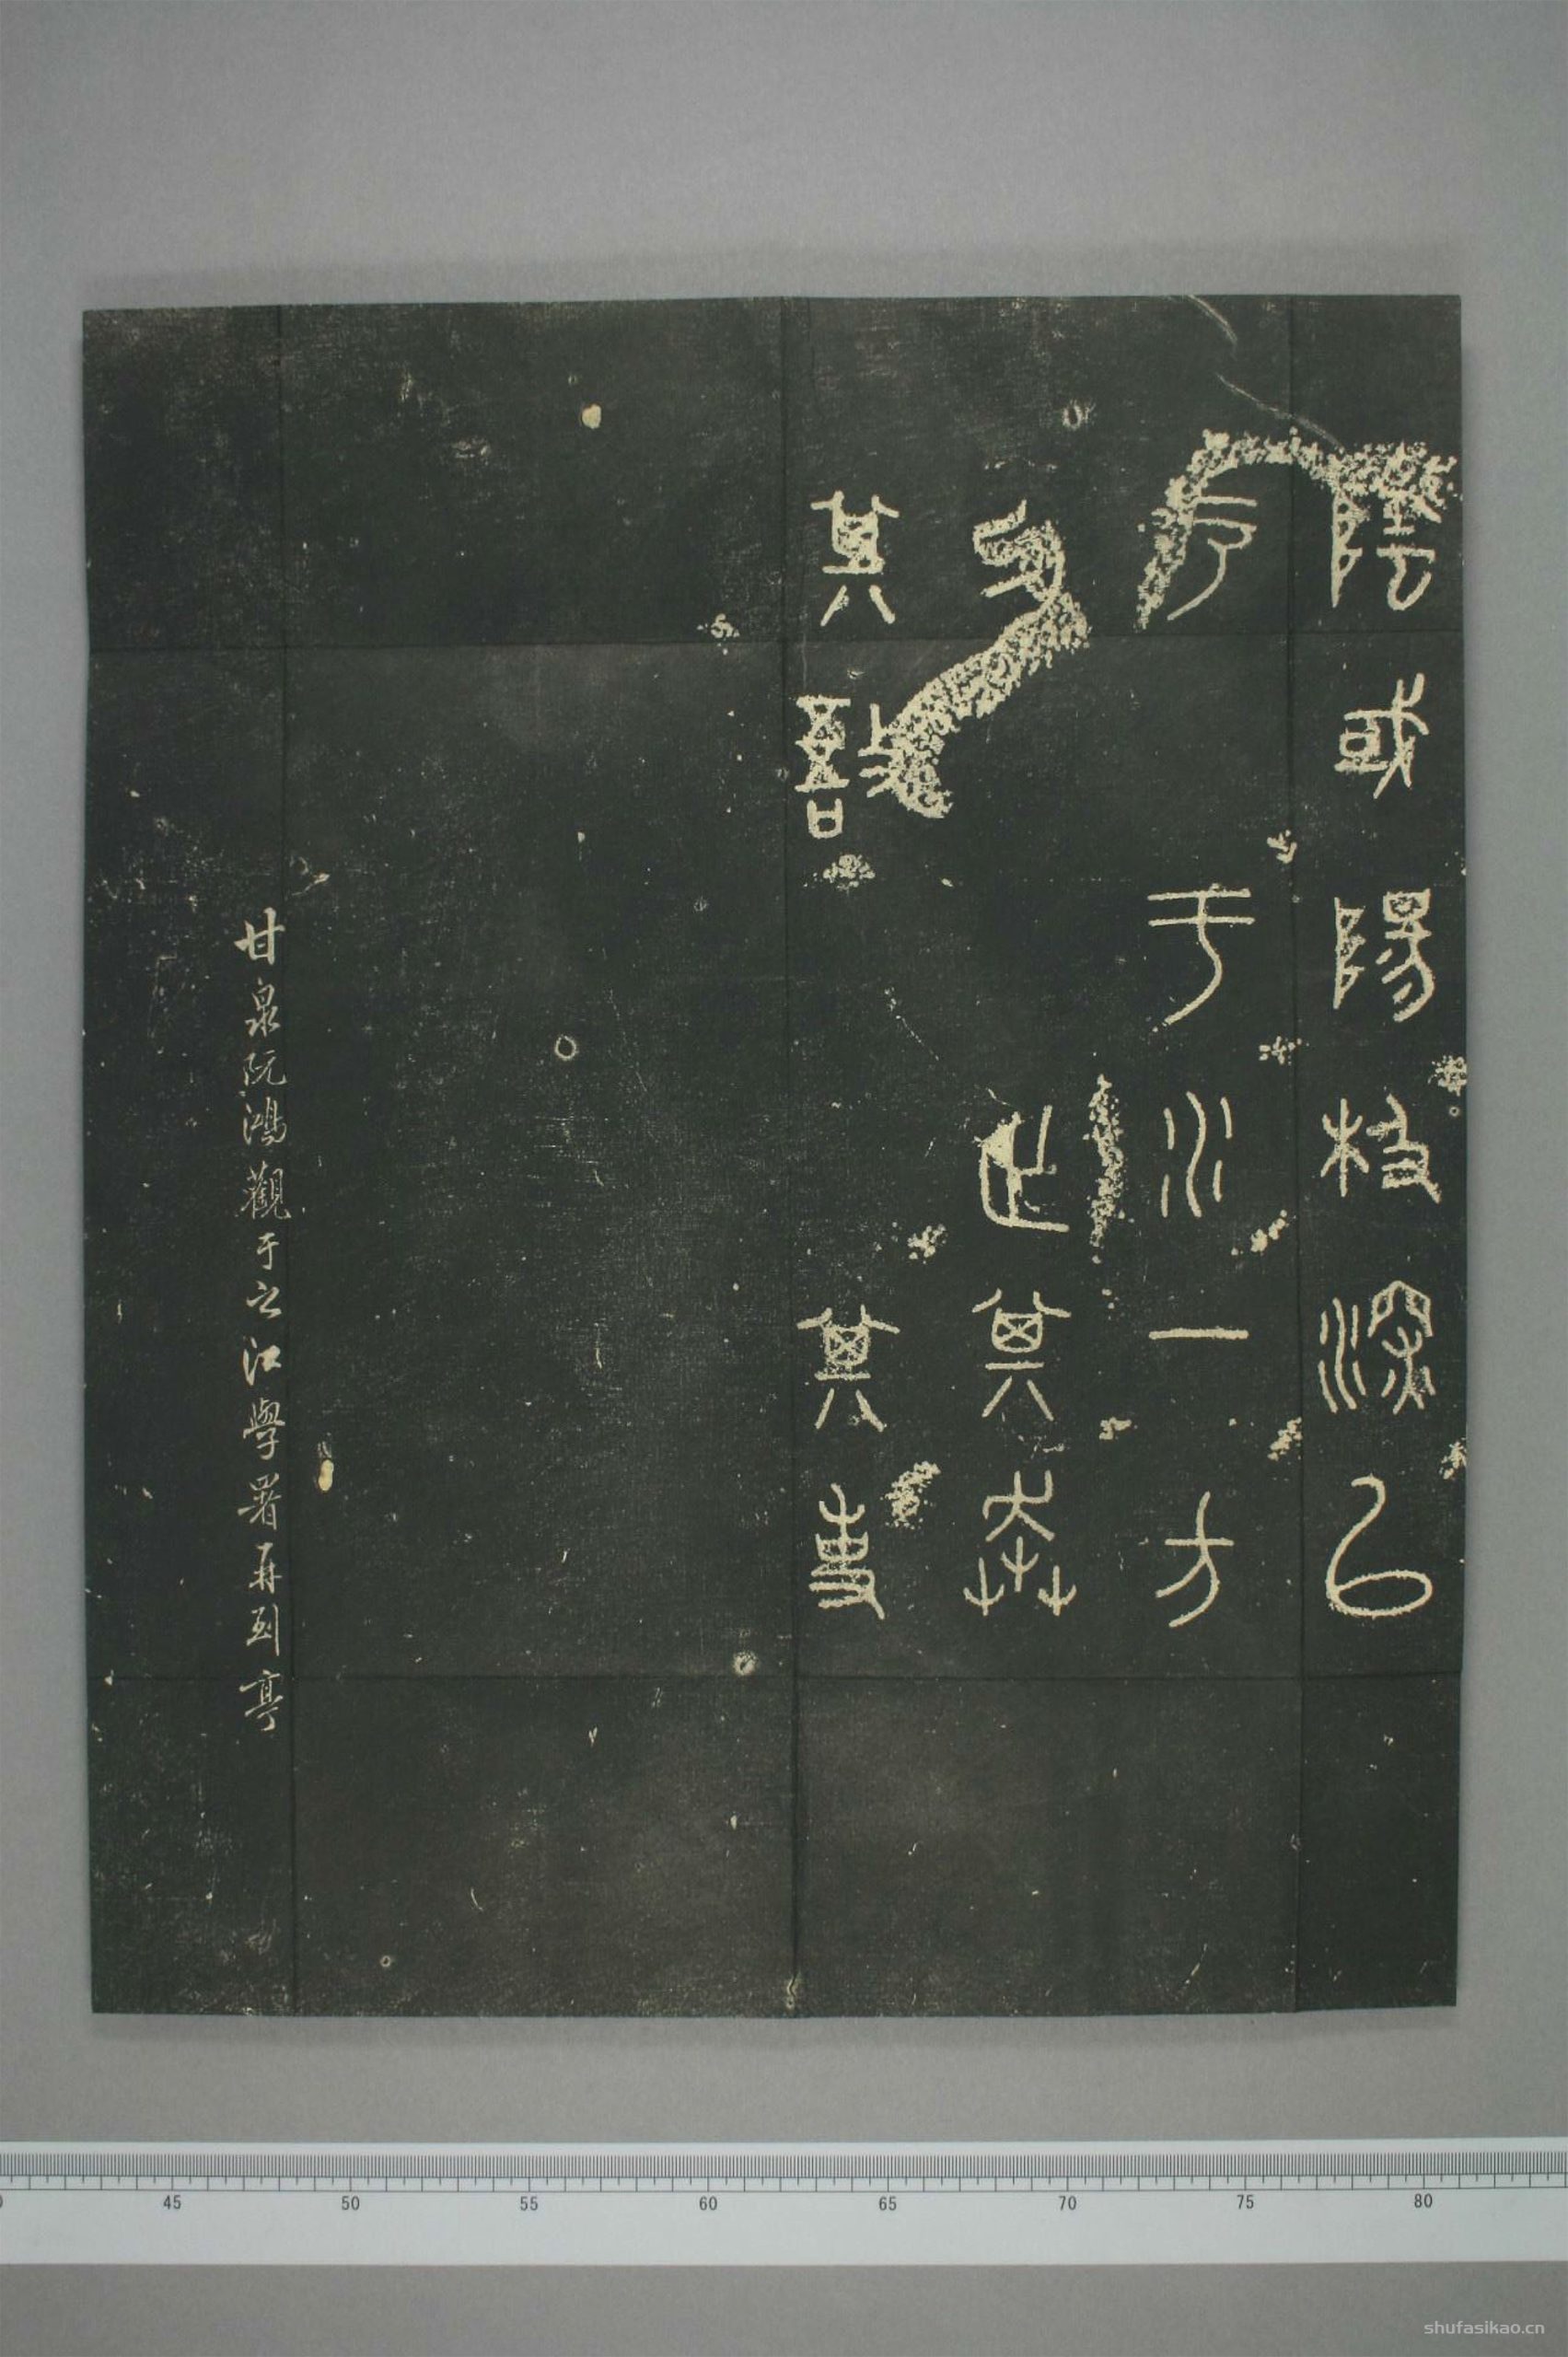 陰或陽极深以
戶于水一方
勿止其奔
其敔其事
甘泉阮鴻觀于之江學署再到亭
45 50 55 60 65 70 75 80
shufasikao.cn